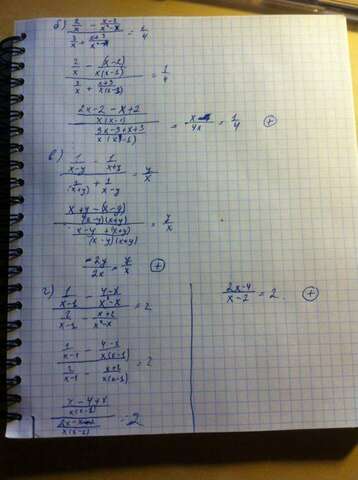 б) (2/x - (x-2)/(x²-x)) / (3/x + (x+3)/(x²-x)) = 1/4
(2/x - (x-2)/(x(x-1))) / (3/x + (x+3)/(x(x-1))) = 1/4
((2x-2-x+2)/(x(x-1))) / ((3x-3+x+3)/(x(x-1))) = x/4x = 1/4 ⊕
в) (1/(x-y) - 1/(x+y)) / (1/(x+y) + 1/(x-y)) = y/x
((x+y-(x-y))/((x-y)(x+y))) / ((x-y+(x+y))/((x-y)(x+y))) = y/x
2y/2x = y/x ⊕
г) (1/(x-1) - (4-x)/(x²-x)) / (2/(x-1) - (x+2)/(x²-x)) = 2
(1/(x-1) - (4-x)/(x(x-1))) / (2/(x-1) - (x+2)/(x(x-1))) = 2
((x-4+x)/(x(x-1))) / = 2
(2x-4)/(x-2) = 2 ⊕